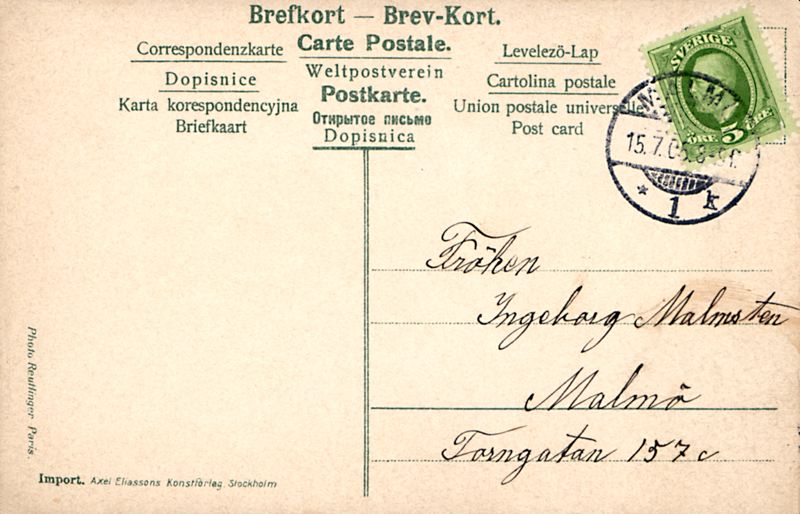 Brefkort — Brev-Kort.
Correspondenzkarte Carte Postale. Levelezö-Lap
Dopisnice Weltpostverein Cartolina postale
Karta korespondencyjna Postkarte. Union postale universelle
Briefkaart Открытое письмо Post card
Dopisnica
SVERIGE
5 ÖRE
MALMÖ
15.7.05
* 1 k
Fröken
Ingeborg Malmsten
Malmö
Torngatan 157 c
Photo Reutlinger Paris.
Import. Axel Eliassons Konstförlag, Stockholm